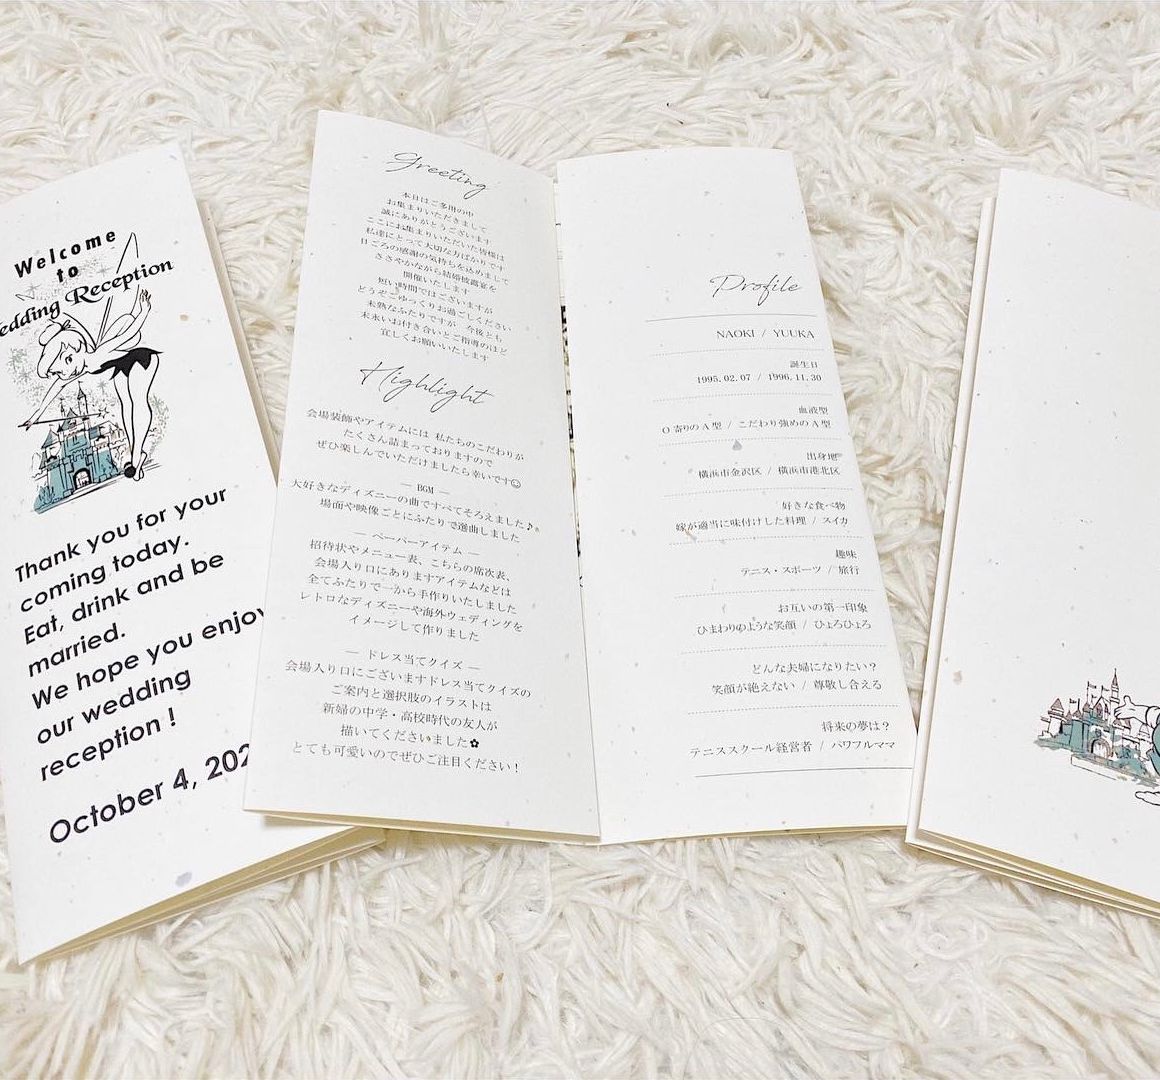 Welcome
to
edding Reception
Thank you for your
coming today.
Eat, drink and be
married.
We hope you enjoy
our wedding
reception !
October 4, 202
Greeting
本日はご多用の中
お集まりいただきまして
誠にありがとうございます
ここにお集まりいただいた皆様は
私達にとって大切な方ばかりです
日ごろの感謝の気持ちを込めまして
ささやかながら結婚披露宴を
開催いたします
短い時間ではございますが
どうぞごゆっくりお過ごしください
未熟なふたりですが 今後とも
末永いお付き合いとご指導のほど
宜しくお願いいたします
Highlight
会場装飾やアイテムには 私たちのこだわりが
たくさん詰まっておりますので
ぜひ楽しんでいただけましたら幸いです☺
― BGM ―
大好きなディズニーの曲ですべてそろえました♪
場面や映像ごとにふたりで選曲しました
― ペーパーアイテム ―
招待状やメニュー表、こちらの席次表、
会場入り口にありますアイテムなどは
全てふたりで一から手作りいたしました
レトロなディズニーや海外ウェディングを
イメージして作りました
― ドレス当てクイズ ―
会場入り口にございますドレス当てクイズの
ご案内と選択肢のイラストは
新婦の中学・高校時代の友人が
描いてくださいました✿
とても可愛いのでぜひご注目ください！
Profile
NAOKI / YUUKA
誕生日
1995. 02. 07 / 1996. 11. 30
血液型
O 寄りの A 型 / こだわり強めの A 型
出身地
横浜市金沢区 / 横浜市港北区
好きな食べ物
嫁が適当に味付けした料理 / スイカ
趣味
テニス・スポーツ / 旅行
お互いの第一印象
ひまわりのような笑顔 / ひょろひょろ
どんな夫婦になりたい？
笑顔が絶えない / 尊敬し合える
将来の夢は？
テニススクール経営者 / パワフルママ